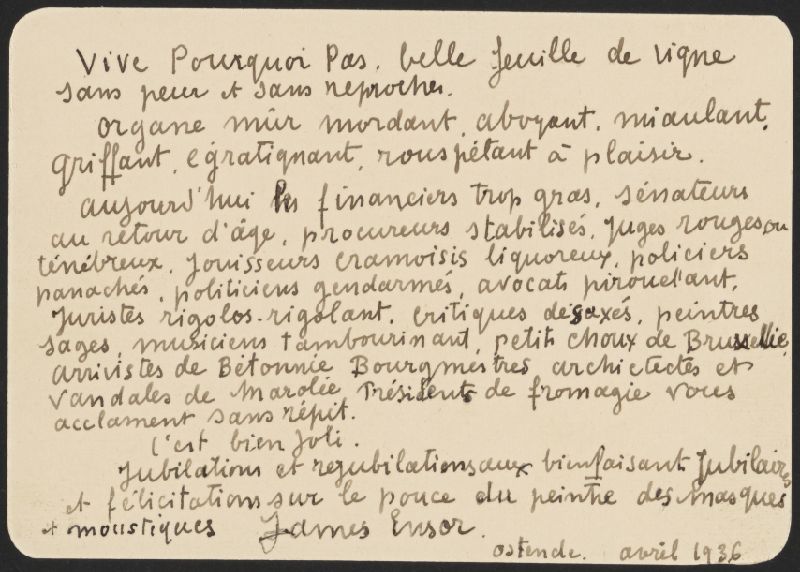 Vive Pourquoi Pas. belle feuille de vigne
sans peur et sans reproches.
organe mûr mordant, aboyant, miaulant,
griffant, egratignant, rouspétant à plaisir.
aujourd'hui les financiers trop gras, sénateurs
au retour d'âge, procureurs stabilisés, juges rouges ou
ténébreux, jouisseurs cramoisis liquoreux, policiers
panachés, politiciens gendarmés, avocats pirouettant,
juristes rigolos-rigolant, critiques desaxés, peintres
sages, musiciens tambourinant, petits choux de Bruxellie,
arrivistes de Bétonnie Bourgmestres architectes et
vandales de Marolée Présidents de fromagie vous
acclament sans répit.
C'est bien joli.
Jubilations et rejubilations aux bienfaisants Jubilaires
et félicitations sur le pouce du peintre des masques
et moustiques James Ensor.
ostende. avril 1936